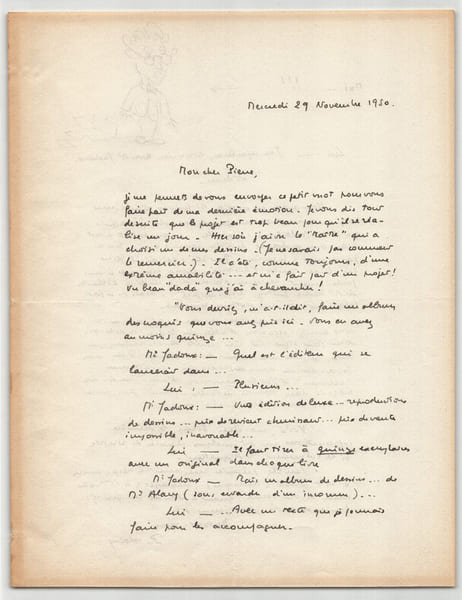 Mercredi 29 Novembre 1950.
Mon cher Pierre,
je me permets de vous envoyer ce petit mot pour vous
faire part de ma dernière émotion. Je vous dis tout
de suite que le projet est trop beau pour qu'il se réa-
lise un jour. Hier soir j'ai vu le "Maître" qui a
choisi un de mes dessins. (Je ne savais pas comment
le remercier.) - Il a été, comme toujours, d'une
extrême amabilité... et m'a fait part d'un projet!
Un beau "dada" que j'ai à chevaucher!
"Vous devriez, m'a-t-il dit, faire un album
des croquis que vous avez pris ici. Vous en avez
au moins quinze...
Mr Jadoux: — Quel est l'éditeur qui se
lancerait dans...
Lui: — Plusieurs...
Mr Jadoux: — Une édition de luxe... reproductions
de dessins... prix de revient... prix de vente
impossible, ...
Lui — Il faut tirer à quinze exemplaires
avec un original dans chaque livre
Mr Jadoux — Mais un album de dessins... de
Mr Alary (sous entendu d'un inconnu)...
Lui — ...Avec un texte que je pourrais
faire pour les accompagner.